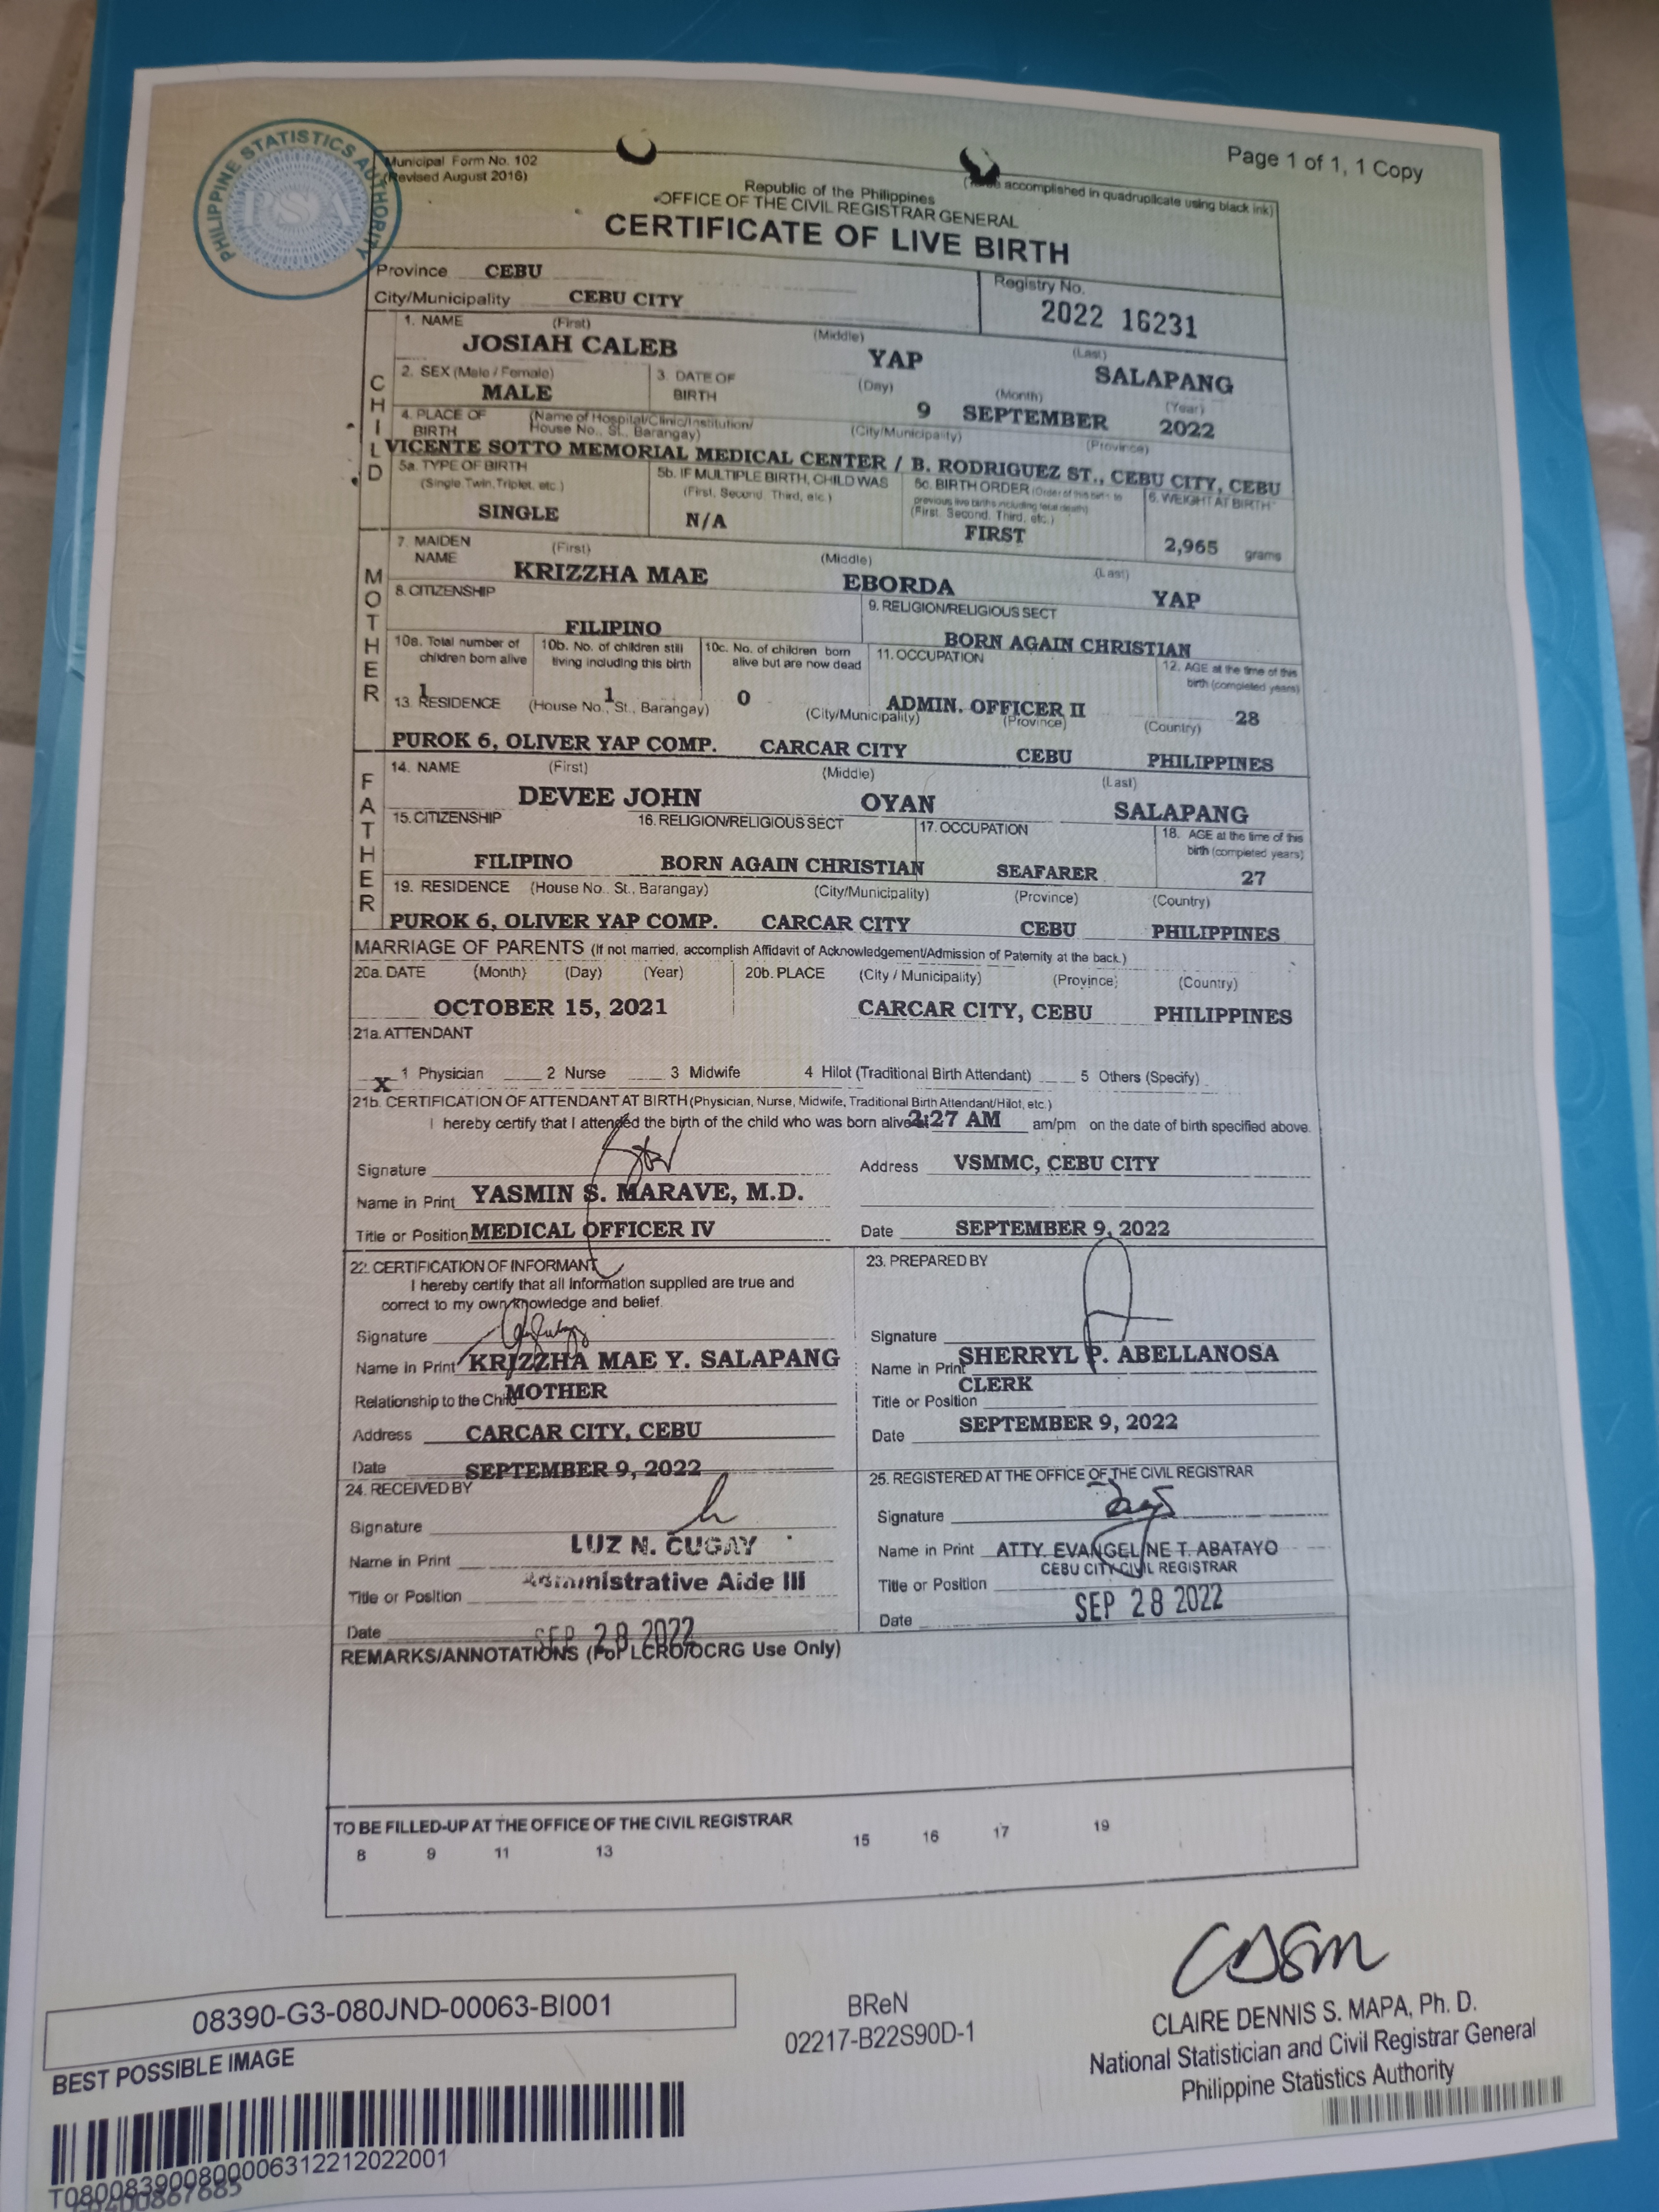 PHILIPPINE STATISTICS AUTHORITY
PSA
Municipal Form No. 102
(Revised August 2016)
Page 1 of 1, 1 Copy
accomplished in quadruplicate using black ink)
Republic of the Philippines
OFFICE OF THE CIVIL REGISTRAR GENERAL
CERTIFICATE OF LIVE BIRTH
Province CEBU
City/Municipality CEBU CITY
Registry No.
2022 16231
CHILD
1. NAME (First) (Middle) (Last)
JOSIAH CALEB YAP SALAPANG
2. SEX (Male / Female) 3. DATE OF BIRTH (Day) (Month) (Year)
MALE 9 SEPTEMBER 2022
4. PLACE OF BIRTH (Name of Hospital/Clinic/Institution/ House No., St., Barangay) (City/Municipality) (Province)
VICENTE SOTTO MEMORIAL MEDICAL CENTER / B. RODRIGUEZ ST., CEBU CITY, CEBU
5a. TYPE OF BIRTH (Single, Twin, Triplet, etc.) 5b. IF MULTIPLE BIRTH, CHILD WAS (First, Second, Third, etc.) 5c. BIRTH ORDER (Order of this birth to previous live births including fetal death) (First, Second, Third, etc.) 6. WEIGHT AT BIRTH
SINGLE N/A FIRST 2,965 grams
MOTHER
7. MAIDEN NAME (First) (Middle) (Last)
KRIZZHA MAE EBORDA YAP
8. CITIZENSHIP 9. RELIGION/RELIGIOUS SECT
FILIPINO BORN AGAIN CHRISTIAN
10a. Total number of children born alive 10b. No. of children still living including this birth 10c. No. of children born alive but are now dead 11. OCCUPATION 12. AGE at the time of this birth (completed years)
1 1 0 ADMIN. OFFICER II 28
13. RESIDENCE (House No., St., Barangay) (City/Municipality) (Province) (Country)
PUROK 6, OLIVER YAP COMP. CARCAR CITY CEBU PHILIPPINES
FATHER
14. NAME (First) (Middle) (Last)
DEVEE JOHN OYAN SALAPANG
15. CITIZENSHIP 16. RELIGION/RELIGIOUS SECT 17. OCCUPATION 18. AGE at the time of this birth (completed years)
FILIPINO BORN AGAIN CHRISTIAN SEAFARER 27
19. RESIDENCE (House No., St., Barangay) (City/Municipality) (Province) (Country)
PUROK 6, OLIVER YAP COMP. CARCAR CITY CEBU PHILIPPINES
MARRIAGE OF PARENTS (If not married, accomplish Affidavit of Acknowledgement/Admission of Paternity at the back.)
20a. DATE (Month) (Day) (Year) 20b. PLACE (City / Municipality) (Province) (Country)
OCTOBER 15, 2021 CARCAR CITY, CEBU PHILIPPINES
21a. ATTENDANT
X 1 Physician 2 Nurse 3 Midwife 4 Hilot (Traditional Birth Attendant) 5 Others (Specify)
21b. CERTIFICATION OF ATTENDANT AT BIRTH (Physician, Nurse, Midwife, Traditional Birth Attendant/Hilot, etc.)
I hereby certify that I attended the birth of the child who was born alive at 2:27 AM am/pm on the date of birth specified above.
Signature Address VSMMC, CEBU CITY
Name in Print YASMIN S. MARAVE, M.D.
Title or Position MEDICAL OFFICER IV Date SEPTEMBER 9, 2022
22. CERTIFICATION OF INFORMANT
I hereby certify that all information supplied are true and
correct to my own knowledge and belief.
Signature
Name in Print KRIZZHA MAE Y. SALAPANG
Relationship to the Child MOTHER
Address CARCAR CITY, CEBU
Date SEPTEMBER 9, 2022
23. PREPARED BY
Signature
Name in Print SHERRYL P. ABELLANOSA
Title or Position CLERK
Date SEPTEMBER 9, 2022
24. RECEIVED BY
Signature
Name in Print LUZ N. CUGAY
Title or Position Administrative Aide III
Date SEP 28 2022
25. REGISTERED AT THE OFFICE OF THE CIVIL REGISTRAR
Signature
Name in Print ATTY. EVANGELINE T. ABATAYO
CEBU CITY CIVIL REGISTRAR
Title or Position
Date SEP 28 2022
REMARKS/ANNOTATIONS (For LCRO/OCRG Use Only)
TO BE FILLED-UP AT THE OFFICE OF THE CIVIL REGISTRAR
8 9 11 13 15 16 17 19
08390-G3-080JND-00063-BI001
BEST POSSIBLE IMAGE
T080083900800006312212022001
BReN
02217-B22S90D-1
CLAIRE DENNIS S. MAPA, Ph. D.
National Statistician and Civil Registrar General
Philippine Statistics Authority